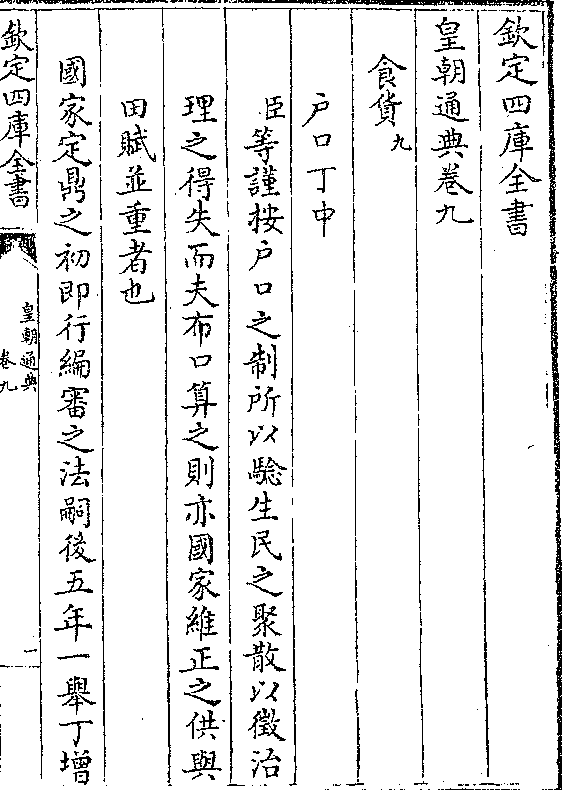 欽定四庫全書
皇朝通典卷九
食貨九
戶口丁中
臣等謹按戶口之制所以驗生民之聚散以徵治
理之得失而夫布口算之則亦國家維正之供與
田賦並重者也
國家定鼎之初即行編審之法嗣後五年一舉丁增
欽定四庫全書
皇朝通典
卷九
一